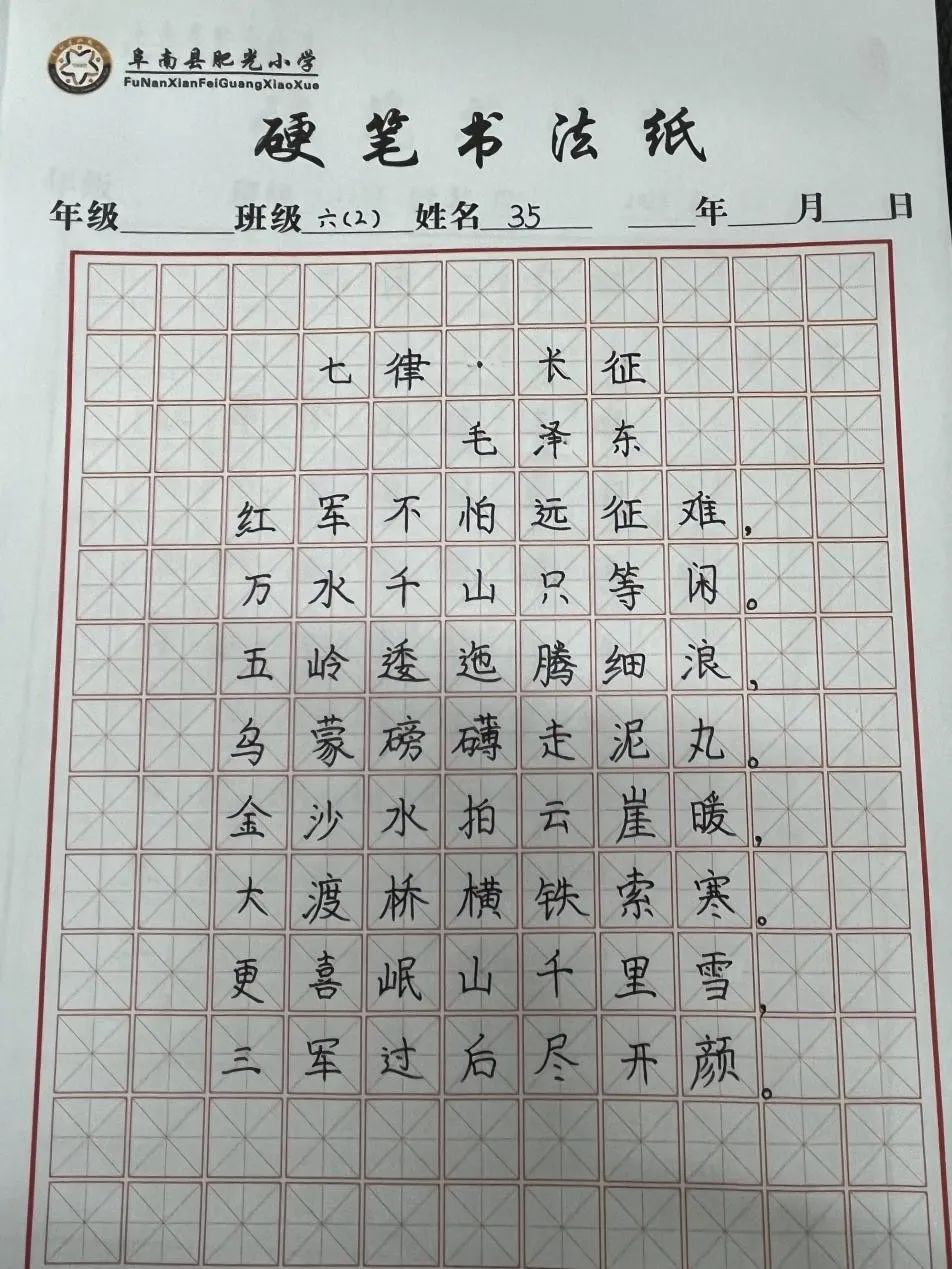 阜南县肥光小学
FuNanXianFeiGuangXiaoXue
硬笔书法纸
年级 班级 六(2) 姓名 35 年 月 日
七律·长征
毛泽东
红军不怕远征难,
万水千山只等闲。
五岭逶迤腾细浪,
乌蒙磅礴走泥丸。
金沙水拍云崖暖,
大渡桥横铁索寒。
更喜岷山千里雪,
三军过后尽开颜。